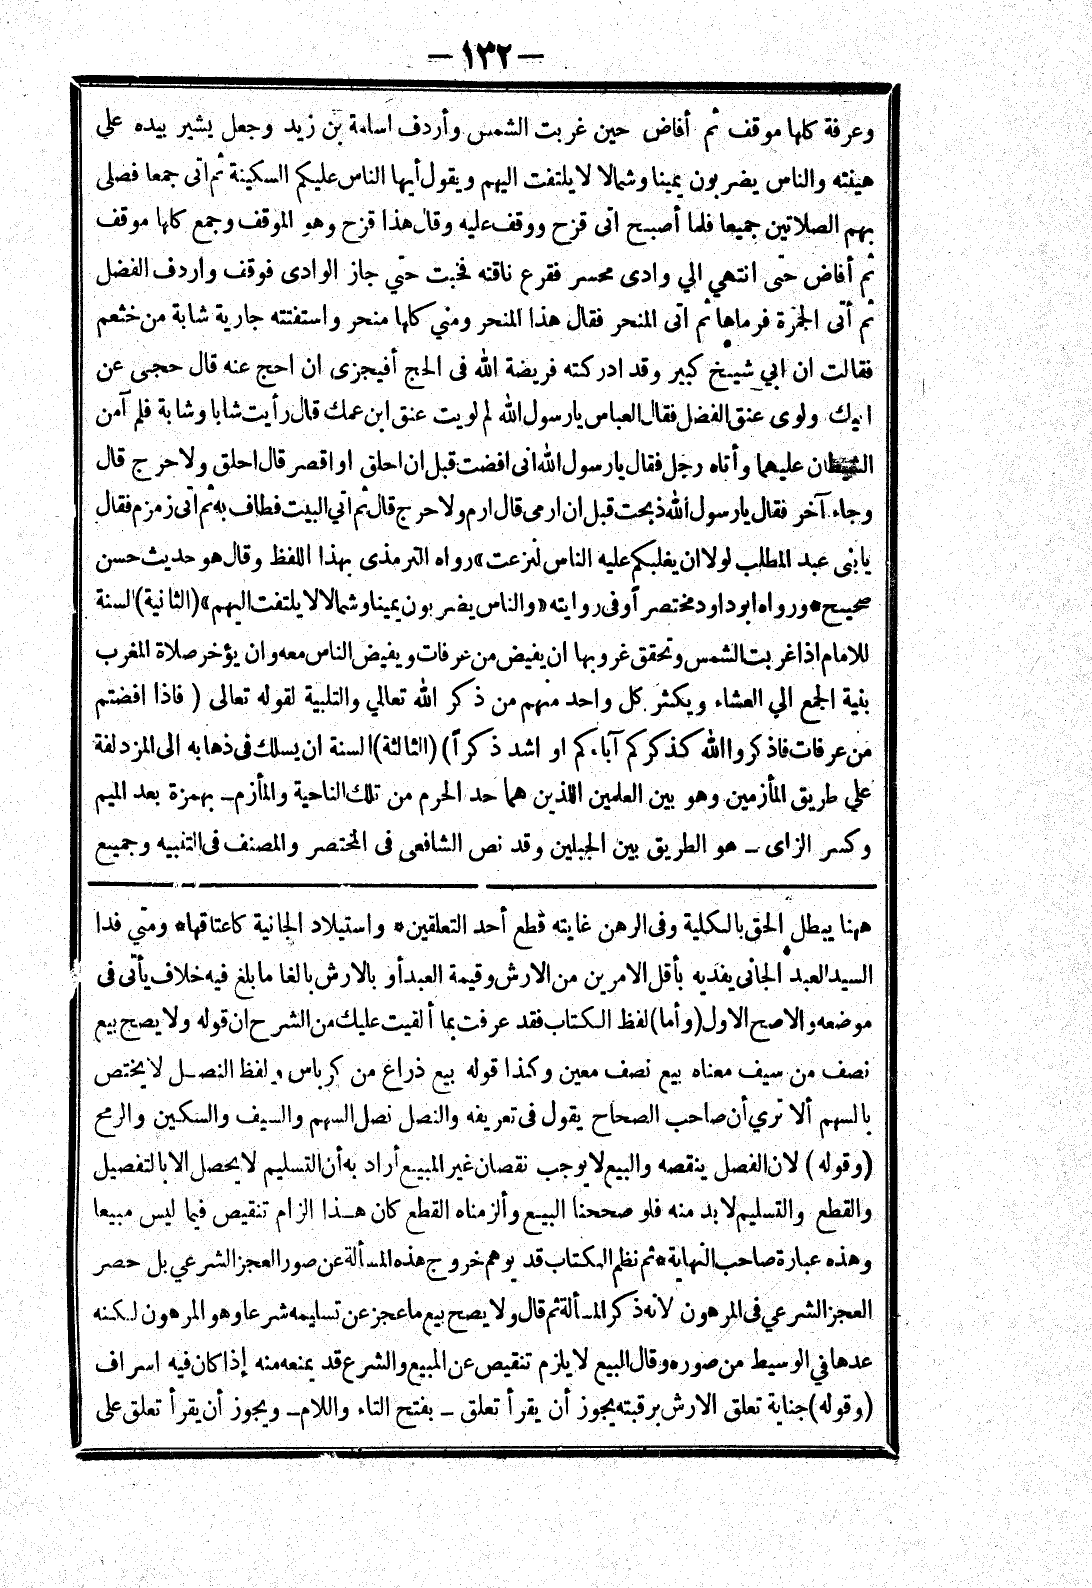 — ١٣٢ —
وعرفة كلها موقف ثم أفاض حين غربت الشمس وأردف اسامة بن زيد وجعل يشير بيده علي
هينته والناس يضربون يمينا وشمالا لا يلتفت اليهم ويقول أيها الناس عليكم السكينة ثم اتى جمعا فصلى
بهم الصلاتين جميعا فلما أصبح اتى قزح ووقف عليه وقال هذا قزح وهو الموقف وجمع كلها موقف
ثم أفاض حتى انتهي الي وادى محسر فقرع ناقته فخبت حتي جاز الوادى فوقف واردف الفضل
ثم أتى الجمرة فرماها ثم اتى المنحر فقال هذا المنحر ومني كلها منحر واستفتته جارية شابة من خثعم
فقالت ان ابي شيخ كبير وقد ادركته فريضة الله فى الحج أفيجزى ان احج عنه قال حجى عن
ابيك ولوى عنق الفضل فقال العباس يارسول الله لم لويت عنق ابن عمك قال رأيت شابا وشابة فلم آمن
الشيطان عليهما وأتاه رجل فقال يارسول الله انى افضت قبل ان احلق او اقصر قال احلق ولا حرج قال
وجاء آخر فقال يارسول الله ذبحت قبل ان ارمى قال ارم ولا حرج قال ثم اتي البيت فطاف به ثم اتى زمزم فقال
يابنى عبد المطلب لولا ان يغلبكم عليه الناس لنزعت» رواه الترمذى بهذا اللفظ وقال هو حديث حسن
صحيح * ورواه ابو داود مختصراً وفى روايته «والناس يضربون يمينا وشمالا لا يلتفت اليهم» (الثانية) السنة
للامام اذا غربت الشمس وتحقق غروبها ان يفيض من عرفات ويفيض الناس معه وان يؤخر صلاة المغرب
بنية الجمع الي العشاء ويكثر كل واحد منهم من ذكر الله تعالي والتلبية لقوله تعالى ( فاذا افضتم
من عرفات فاذكروا الله كذكركم آباءكم او اشد ذكراً) (الثالثة) السنة ان يسلك فى ذهابه الى المزدلفة
علي طريق المأزمين وهو بين العلمين اللذين هما حد الحرم من تلك الناحية والمأزم ــ بهمزة بعد الميم
وكسر الزاى ــ هو الطريق بين الجبلين وقد نص الشافعى فى المختصر والمصنف فى التنبيه وجميع
ههنا يبطل الحق بالكلية وفى الرهن غايته قطع أحد التعلقين * واستيلاد الجانية كاعتاقها * ومتي فدا
السيد العبد الجانى يفديه بأقل الامرين من الارش وقيمة العبد أو بالارش بالغا ما بلغ فيه خلاف يأتى فى
موضعه والاصح الاول (وأما) لفظ الكتاب فقد عرفت بما ألقيت عليك من الشرح ان قوله ولا يصح بيع
نصف من سيف معناه بيع نصف معين وكذا قوله بيع ذراع من كرباس ولفظ النصل لا يختص
بالسهم ألا تري أن صاحب الصحاح يقول فى تعريفه والنصل نصل السهم والسيف والسكين والرمح
(وقوله) لان الفصل ينقصه والبيع لا يوجب نقصان غير المبيع أراد به أن التسليم لا يحصل الا بالتفصيل
والقطع والتسليم لا بد منه فلو صححنا البيع وألزمناه القطع كان هذا الزام تنقيص فيما ليس مبيعا
وهذه عبارة صاحب النهاية * ثم نظم الكتاب قد يوهم خروج هذه المسألة عن صور العجز الشرعي بل حصر
العجز الشرعي فى المرهون لانه ذكر المسألة ثم قال ولا يصح بيع ما عجز عن تسليمه شرعا وهو المرهون لكنه
عدها في الوسيط من صوره وقال البيع لا يلزم تنقيص عن المبيع والشرع قد يمنعه منه إذا كان فيه اسراف
(وقوله) جناية تعلق الارش برقبته يجوز أن يقرأ تعلق ــ بفتح التاء واللام ــ ويجوز أن يقرأ تعلق على